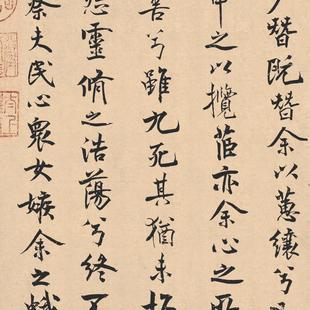 夕替既替余以蕙纕兮
申之以攬茞亦余心之所
善兮雖九死其猶未悔
怨靈脩之浩蕩兮終不
察夫民心衆女嫉余之蛾